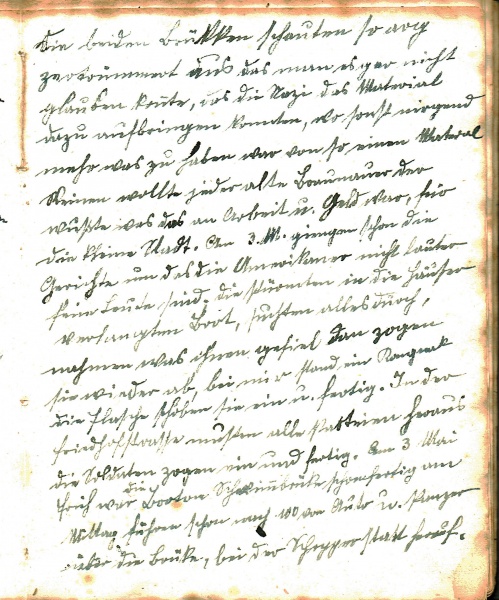 die beiden Brükken schauten so arg
zertrümmert aus das man es gar nicht
glauben konte, das die Nazi das Material
dazu aufbringen konnten, wo sonst nirgend
mehr was zu haben war von so einen Material
Weinen wollte jeder alte Braunauer der
wußte was das an Arbeit u. Geld war, für
die kleine Stadt. Am 3. M. giengen schon die
Gerichte um das die Amerikaner nicht lauter
feine Leute sind. die stürmten in die Häuser
verlangten Brot, suchten alles durch,
nahmen was ihnen gefiel dan zogen
sie wieder ab, bei mir stand ein Kongnak
die Flasche schoben sie ein u. fertig. In der
Friedhofstrasse mußten alle Parteien heraus
die Soldaten zogen ein und fertig. Am 3 Mai
früh war die Ponton Schwimmbrücke schon fertig am
Mittag führen schon nach 100 von Auto u. Panzer
über die Brüke, bei der Schopperstatt herauf.